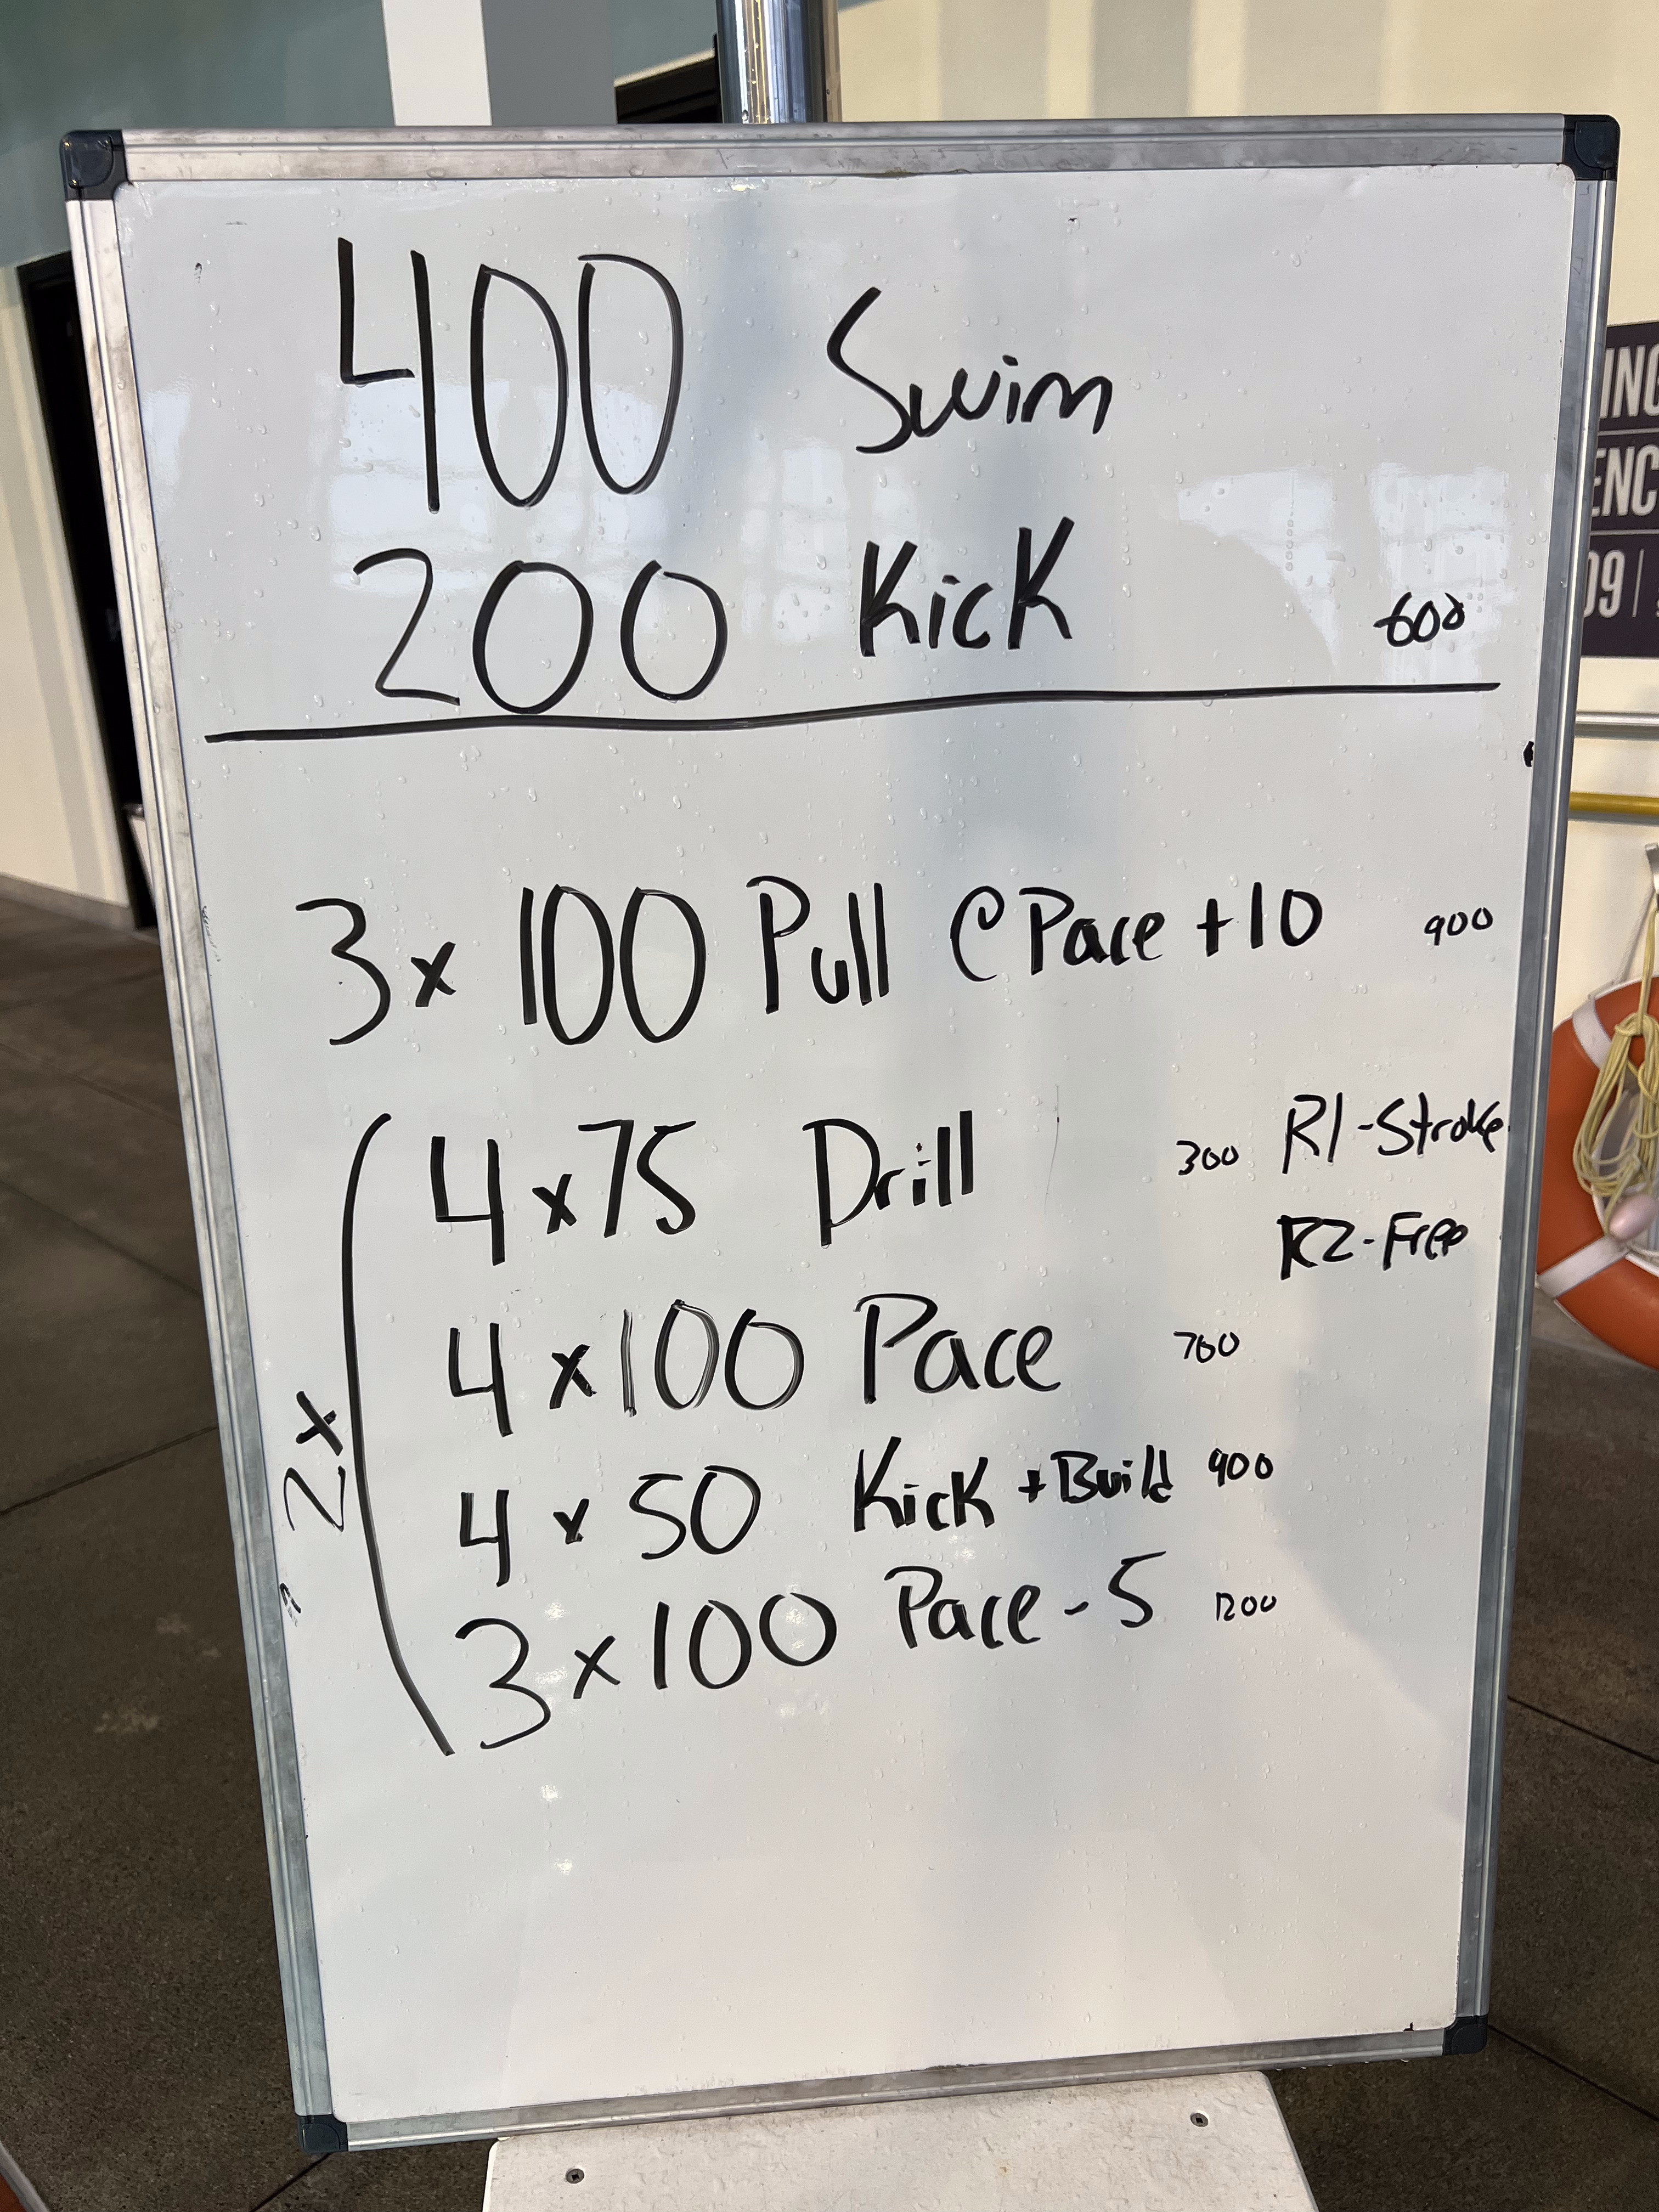 400 Swim
200 Kick 600
3x 100 Pull @ Pace +10 900
2x
4 x 75 Drill 300 R1-Stroke
R2-Free
4 x 100 Pace 700
4 x 50 Kick + Build 900
3 x 100 Pace - 5 1200
ING
ENC
09 |